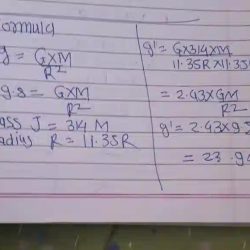 formula
g = G×M
R²
g.s = G×M
R²
ass J = 314 M
adius R = 11.35R
g' = G×314×M
11.35R×11.35
= 2.43×GM
R²
g' = 2.43×9.
= 23.94